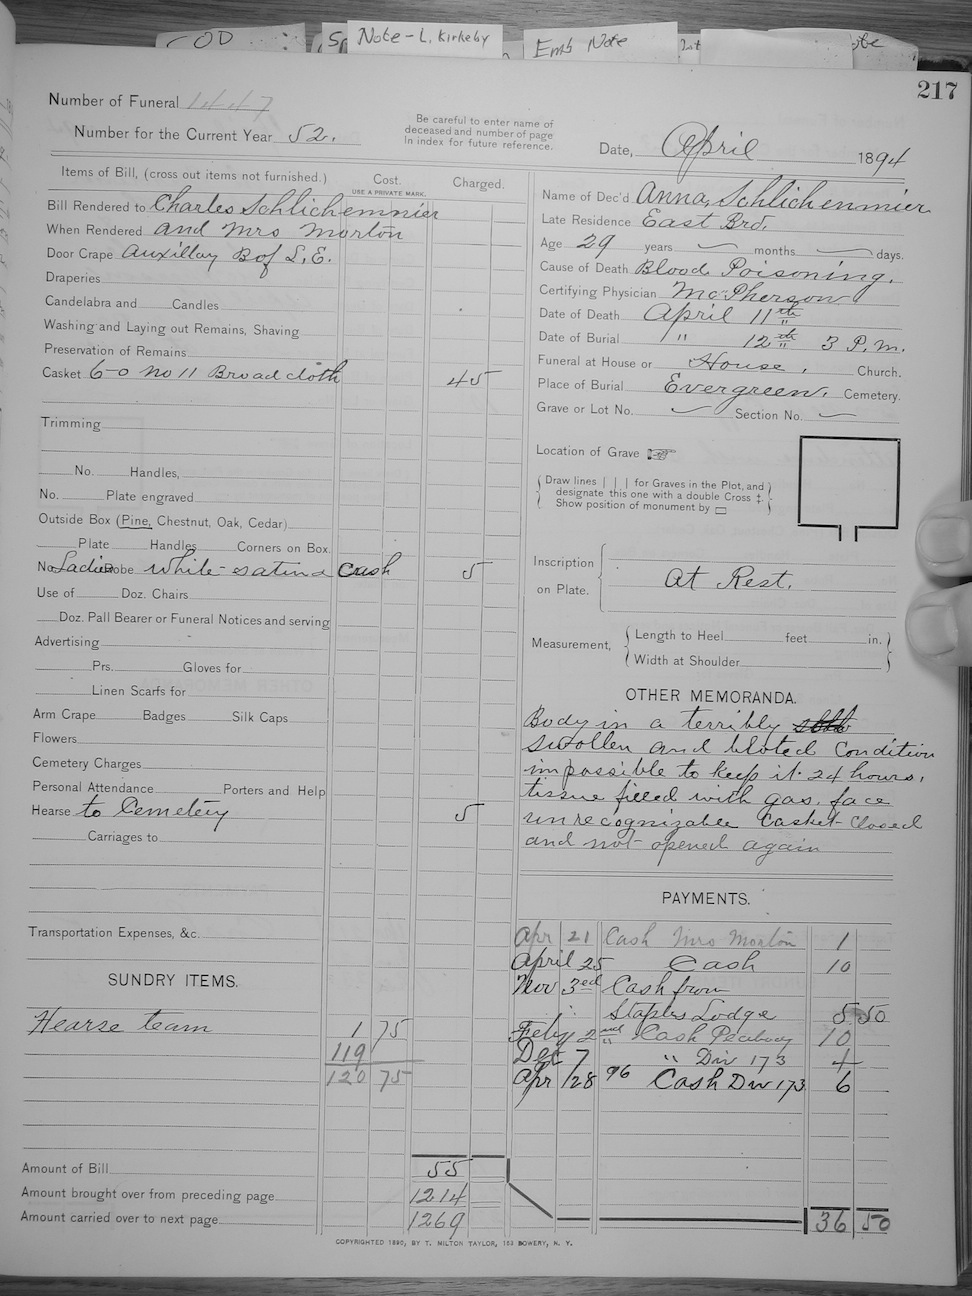 Note - L. Kirkeby
Emb Note
217
Number of Funeral 1447
Number for the Current Year 52.
Be careful to enter name of
deceased and number of page
in index for future reference.
Date, April 1894
Items of Bill, (cross out items not furnished.) Cost. Charged.
USE A PRIVATE MARK.
Bill Rendered to Charles Schlichemnier
When Rendered and Mrs Morton
Door Crape Auxillay B of L. E.
Draperies
Candelabra and Candles
Washing and Laying out Remains, Shaving
Preservation of Remains
Casket 6-0 No 11 Broadcloth 45
Trimming
No. Handles,
No. Plate engraved
Outside Box (Pine, Chestnut, Oak, Cedar)
Plate Handles Corners on Box.
No Ladies Robe white satin & Cash 5
Use of Doz. Chairs
Doz. Pall Bearer or Funeral Notices and serving
Advertising
Prs. Gloves for
Linen Scarfs for
Arm Crape Badges Silk Caps
Flowers
Cemetery Charges
Personal Attendance Porters and Help
Hearse to Cemetery 5
Carriages to
Transportation Expenses, &c.
SUNDRY ITEMS.
Hearse team 1 75
119
120 75
Amount of Bill 55
Amount brought over from preceding page 1214
Amount carried over to next page 1269
Name of Dec'd Anna, Schlichenmier
Late Residence East Brd.
Age 29 years months days.
Cause of Death Blood Poisoning.
Certifying Physician McPherson
Date of Death April 11th
Date of Burial " 12th 3 P.M.
Funeral at House or House, Church.
Place of Burial Evergreen. Cemetery.
Grave or Lot No. Section No.
Location of Grave
Draw lines | | | for Graves in the Plot, and
designate this one with a double Cross ‡.
Show position of monument by □
Inscription
on Plate. At Rest.
Measurement, Length to Heel feet in.
Width at Shoulder
OTHER MEMORANDA.
Body in a terribly
swollen and bloted Condition
impossible to keep it 24 hours,
tissue filled with gas. face
unrecognizable Casket Closed
and not opened again
PAYMENTS.
Apr 21 Cash Mrs Morton 1
April 25 Cash 10
Nov 3rd Cash from
Staples Lodge 5 50
Feby 2nd Cash Peabody 10
Dec 7 " Div 173 4
Apr 28 96 Cash Div 173 6
36 50
COPYRIGHTED 1890, BY T. MILTON TAYLOR, 153 BOWERY, N. Y.